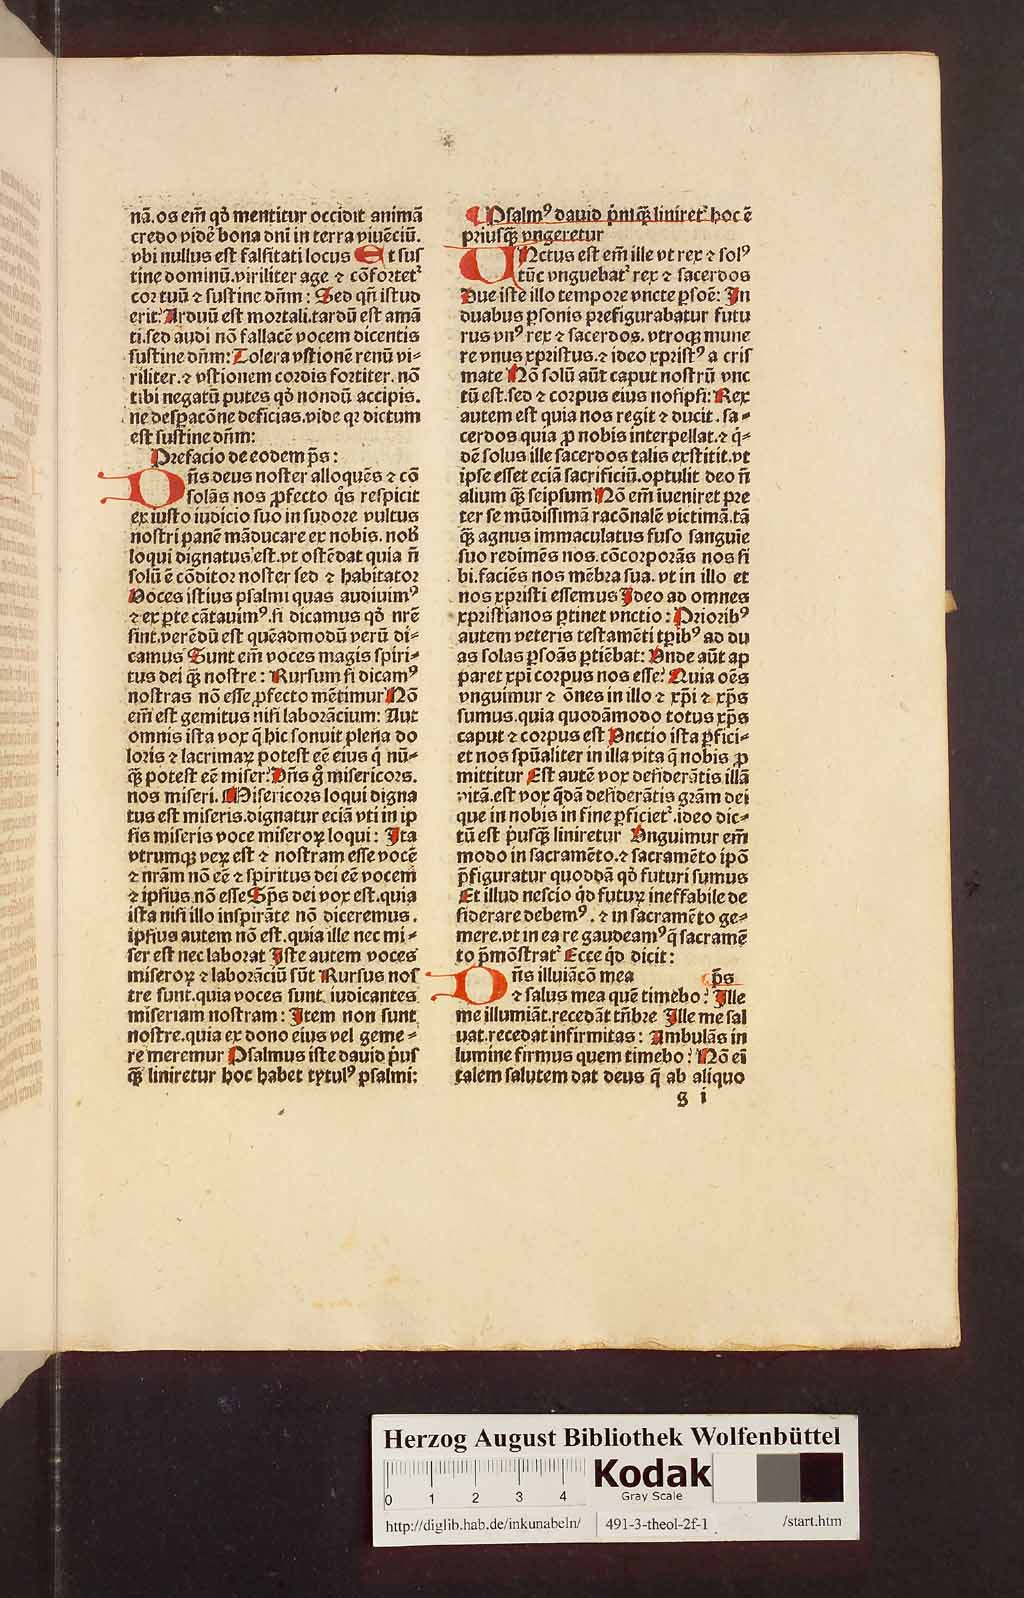 nā. os em̄ qđ mentitur occidit animā
credo vidē bona dn̄i in terra viuēciū.
vbi nullus est falsitati locus Et sus
tine dominū. viriliter age ⁊ cōfortet᷑
cor tuū ⁊ sustine dn̄m : Sed qn̄ istud
erit: Arduū est mortali. tardū est amā
ti. sed audi nō fallacē vocem dicentis
sustine dn̄m: Tolera vstionē renū vi-
riliter. ⁊ vstionem cordis fortiter. nō
tibi negatū putes qđ nondū accipis.
ne despacōne deficias. vide qꝛ dictum
est sustine dn̄m:
Prefacio de eodem p̄s :
Dn̄s deus noster alloquēs ⁊ cō
solās nos ꝓfecto q̊s respicit
ex iusto iudicio suo in sudore vultus
nostri panē māducare ex nobis. nob̄
loqui dignatus est. vt ostēdat quia n̄
solū ē cōditor noster sed ⁊ habitator
Voces istius psalmi quas audiuimꝰ
⁊ ex ꝑte cātauimꝰ. si dicamus qđ nr̄e
sint. verēdū est quēadmodū verū di-
camus Sunt em̄ voces magis spiri-
tus dei q̄ꝫ nostre : Rursum si dicamꝰ
nostras nō esse ꝓfecto mētimur Nō
em̄ est gemitus nisi laborācium: Aut
omnis ista vox q̄ hic sonuit plena do
loris ⁊ lacrimaꝝ potest eē eius q̇ nū-
q̄ꝫ potest eē miser: Dn̄s g̊ misericors.
nos miseri. Misericors loqui digna
tus est miseris. dignatur eciā vti in ip
sis miseris voce miseroꝝ loqui : Ita
vtrumqꝫ veꝝ est ⁊ nostram esse vocē
⁊ nr̄am nō eē ⁊ spiritus dei eē vocem
⁊ ipsius nō esse Sp̄s dei vox est. quia
ista nisi illo inspirāte nō diceremus.
ipsius autem nō est. quia ille nec mi-
ser est nec laborat Iste autem voces
miseroꝝ ⁊ laborāciū sūt Rursus nos
tre sunt. quia voces sunt iudicantes
miseriam nostram : Item non sunt
nostre. quia ex dono eius vel geme-
re meremur Psalmus iste dauid p̄us
q̄ꝫ liniretur hoc habet tytulꝰ psalmi:
Psalmꝰ dauid p̄usq̄ꝫ liniret᷑ hoc ē
priusq̄ꝫ vngeretur
VNctus est em̄ ille vt rex ⁊ solꝰ
tūc vnguebat᷑ rex ⁊ sacerdos
Due iste illo tempore vncte ꝑsoē: In
duabus ꝑsonis prefigurabatur futu
rus vnꝰ rex ⁊ sacerdos. vtroqꝫ mune
re vnus xpristus. ⁊ ideo xpristꝰ a cris
mate Nō solū aūt caput nostrū vnc
tū est. sed ⁊ corpus eius nosipsi: Rex
autem est quia nos regit ⁊ ducit. sa-
cerdos quia ꝓ nobis interpellat. ⁊ q̇-
dē solus ille sacerdos talis exstitit. vt
ipse esset eciā sacrificiū. optulit deo n̄
alium q̄ꝫ seipsum Nō em̄ iueniret pre
ter se mūdissimā racōnalē victimā. tā
q̄ꝫ agnus immaculatus fuso sanguie
suo redimēs nos. cōcorporās nos si
bi. faciēs nos mēbra sua. vt in illo et
nos xpristi essemus Ideo ad omnes
xpristianos ꝑtinet vnctio : Prioribꝰ
autem veteris testamēti tꝑibꝰ ad du
as solas ꝑsoās ꝑtiēbat: Vnde aūt ap
paret xp̄i corpus nos esse: Quia oēs
vnguimur ⁊ ōnes in illo ⁊ xp̄i ⁊ xp̄s
sumus. quia quodāmodo totus xp̄s
caput ⁊ corpus est Vnctio ista ꝑfici-
et nos spūaliter in illa vita q̄ nobis ꝓ
mittitur Est autē vox desiderātis illā
vitā. est vox q̄dā desiderātis grām dei
que in nobis in fine ꝑficiet᷑. ideo dic-
tū est p̄usq̄ꝫ liniretur Vnguimur em̄
modo in sacramēto. ⁊ sacramēto ipō
p̄figuratur quoddā qđ futuri sumus
Et illud nescio q̇d futuꝝ ineffabile de
siderare debemꝰ. ⁊ in sacramēto ge-
mere. vt in ea re gaudeamꝰ q̄ sacramē
to p̄mōstrat᷑ Ecce q̇d dicit :
Dn̄s illuiācō mea p̄s
⁊ salus mea quē timebo: Ille
me illumiāt. recedāt tn̄bre Ille me sal
uat. recedat infirmitas : Ambulās in
lumine firmus quem timebo: Nō ei
talem salutem dat deus q̄ ab aliquo
g i
Herzog August Bibliothek Wolfenbüttel
0 1 2 3 4
Kodak
Gray Scale
http://diglib.hab.de/inkunabeln/ 491-3-theol-2f-1 /start.htm